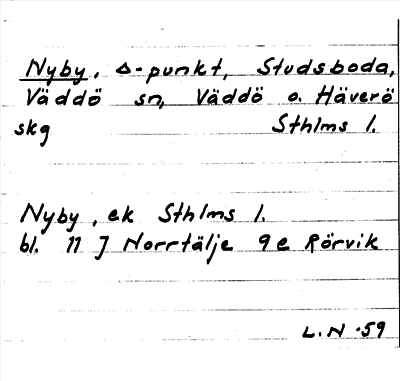 Nyby, Δ-punkt, Studsboda,
Väddö sn, Väddö o. Häverö
skg Sthlms l.
Nyby, ek Sthlms l.
bl. 11 J Norrtälje 9e Rörvik
L.N -59